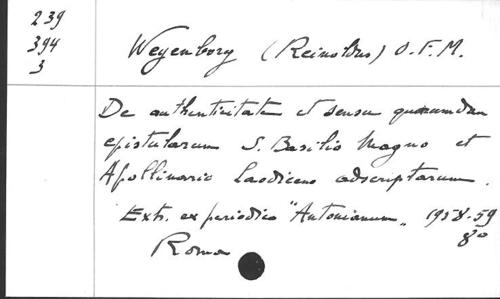 239
394
3
Weyenborg (Reinoldus) O.F.M.
De authenticitate et sensu quarumdam
epistularum S. Basilio Magno et
Apollinario Laodiceno adscriptarum.
Extr. ex periodico "Antonianum„ 1958-59
Roma 8º